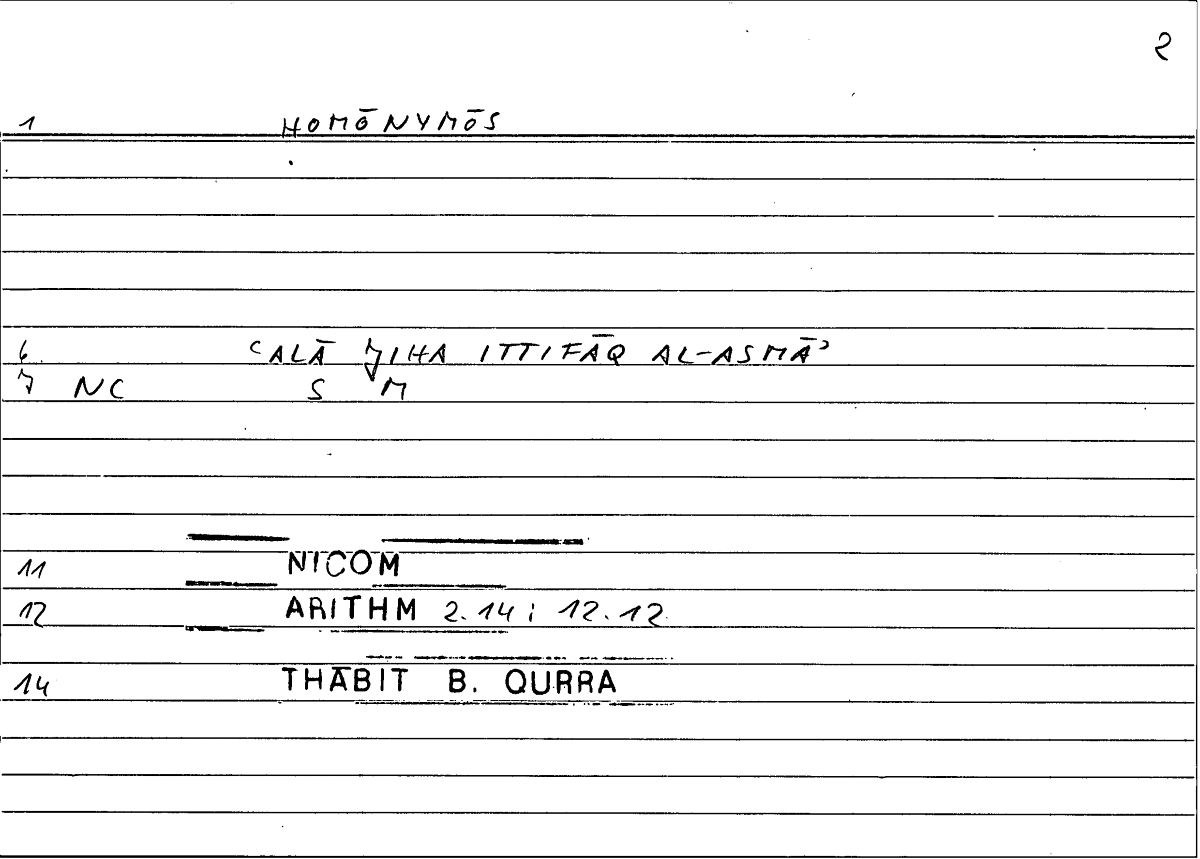 2
1 HOMŌNYMŌS
6 ʿALĀ JIHA ITTIFĀQ AL-ASMĀʾ
7 NC S M
11 NICOM
12 ARITHM 2.14; 12.12
14 THĀBIT B. QURRA